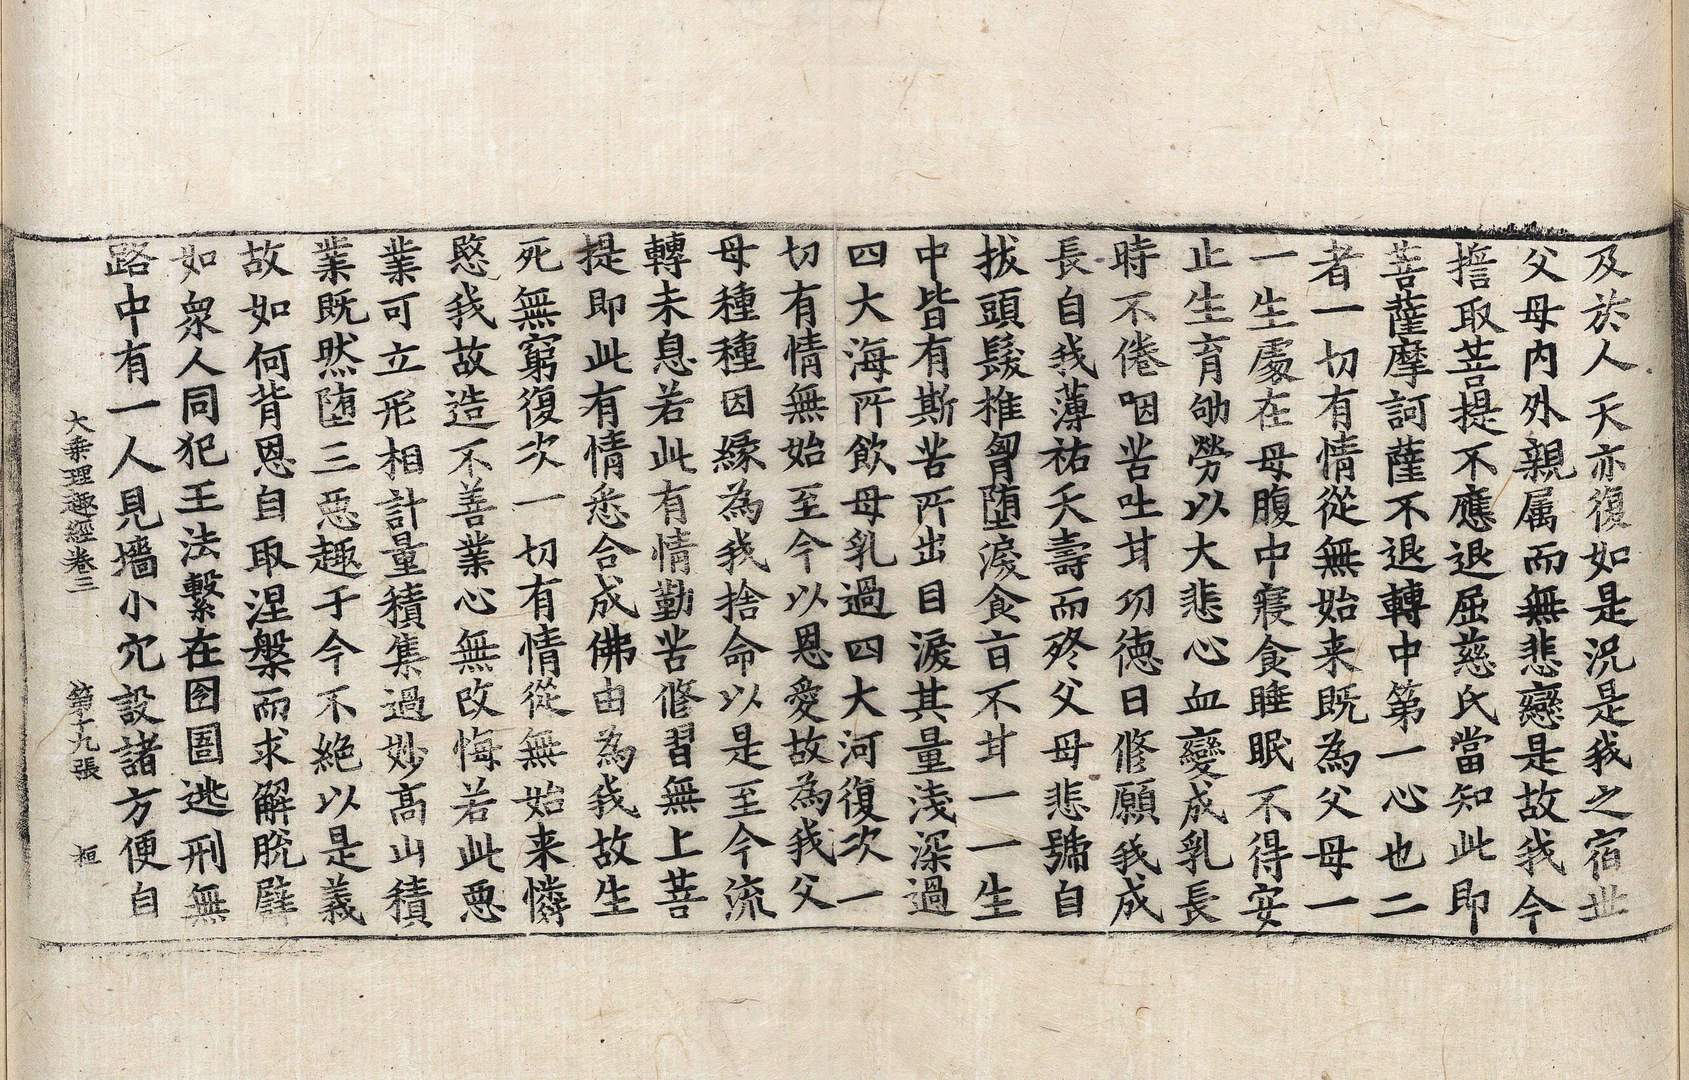 及於人天亦復如是況是我之宿世
父母內外親属而無悲戀是故我今
擔取菩提不應退屈慈氏當知此即
菩薩摩訶薩不退轉中第一心也二
者一切有情從無始来既為父母一
一生處在母腹中寢食睡眠不得安
止生育劬勞以大悲心血變成乳長
時不倦咽苦吐甘功德日修願我成
長自我薄祐夭壽而殀父母悲號自
拔頭髮椎胷墮淚食亡不甘一一生
中皆有斯苦所出目淚其量淺深過
四大海所飲母乳過四大河復次一
切有情無始至今以恩愛故為我父
母種種因緣為我捨命以是至今流
轉未息若此有情勤苦修習無上菩
提即此有情悉合成佛由為我故生
死無窮復次一切有情從無始来憐
愍我故造不善業心無改悔若此惡
業可立形相計量積集過妙高山積
業既然墮三惡趣于今不絕以是義
故如何背恩自取涅槃而求解脫譬
如衆人同犯王法繫在囹圄逃刑無
路中有一人見墻小穴設諸方便自
大乗理趣經卷三 第十九張 桓